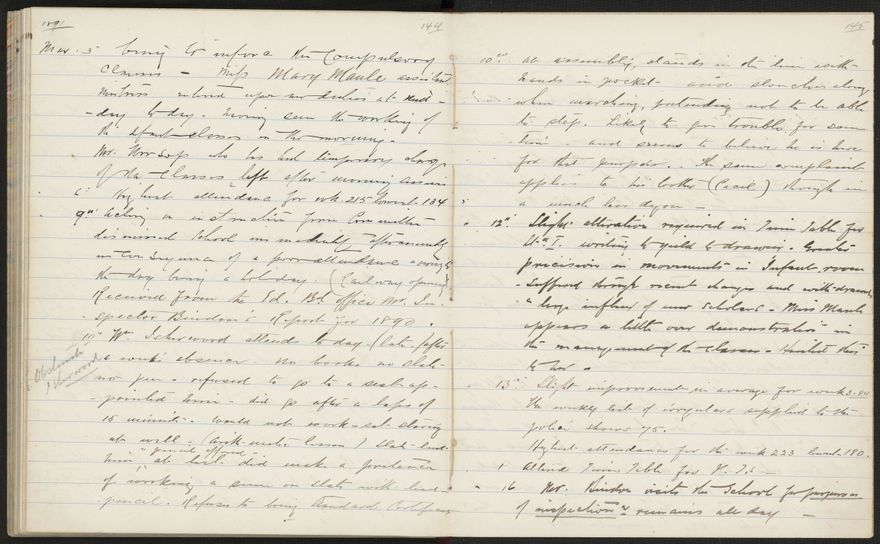 1891
144
Mar. 5 being to inforce the Compulsory
Clauses - Miss Mary Maule assistant
Mistress entered upon her duties at mid-
-day to day. Having seen the working of
the upper classes in the morning.
Mr. who has had temporary charge
of the Classes left after morning session
6" Highest attendance for wk 215 lowest 134
9th Acting on instruction from Committee
dismissed School immediately afterwards
in consequence of a poor attendance owing to
the day being a holiday. (Railway opening)
Received from the Ed. Bd office Mr. In-
-spector Bindon's Report for 1890.
Wm. Isherwood attends to day (late) after
a week's absence no books no slate
no pen - refused to go to a seat ap-
-pointed him - did go after a lapse of
15 minutes. Would not work - sat staring
at wall. (Arithmetic lesson) slate lent
him "pencil offered" at last did make a pretence
of working a sum on slate with lead-
pencil. Refuses to bring Standard Certificate
Obstinate
Isherwood
145
10th at assembly, stands in the line with
hands in pocket - and slouches along
when marching, pretending not to be able
to step. Likely to give trouble for some
time - and seems to believe he is here
for that purpose. The same complaint
applies to his brother (Cecil) though in
a much less degree -
12th Slight alteration required in Time Table for
St. I. writing to yield to drawing. Greater
precision in movements in Infant room
- suffered through recent changes and withdrawals
"large influx of new scholars - Miss Maule
appears a little over demonstrative in
the management of the classes - Hinted this
to her -
13" Slight improvement in average for week
The weekly list of irregulars supplied to the
police shows 75.
Highest attendance for the week 223 lowest 180.
Altered Time Table for
16 Mr. Bindon visits the School for purposes
of inspection & remains all day -